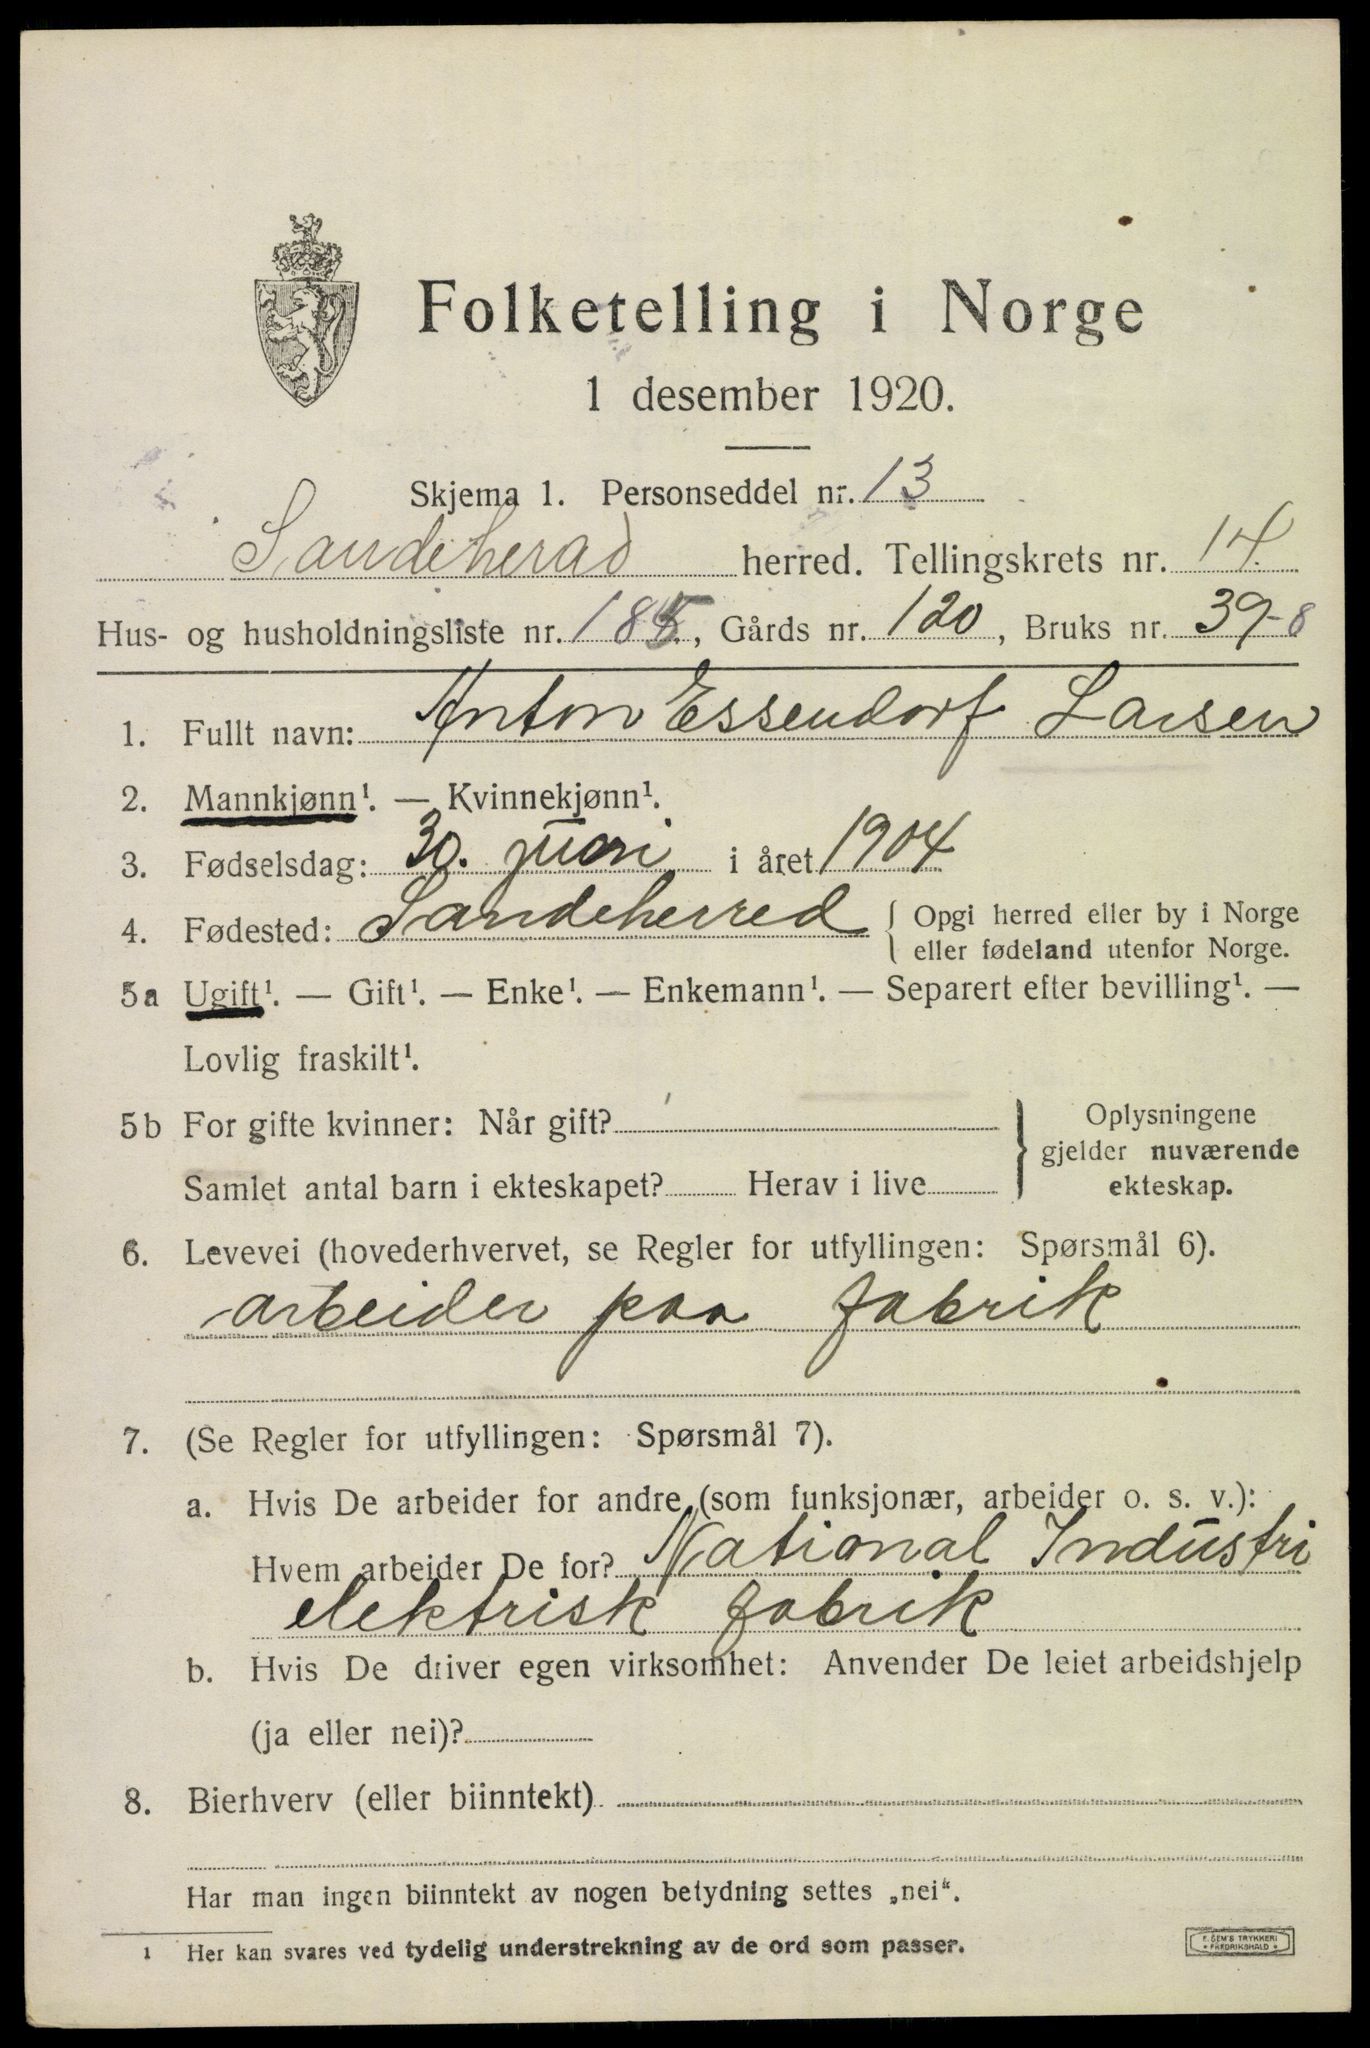 Folketelling i Norge
1 desember 1920.
Skjema 1. Personseddel nr. 13
Sandeherad herred. Tellingskrets nr. 14.
Hus- og husholdningsliste nr. 185, Gårds nr. 120, Bruks nr. 39-8
1. Fullt navn: Anton Essendorf Larsen
2. Mannkjønn¹. — Kvinnekjønn¹.
3. Fødselsdag: 30. juni i året 1904
4. Fødested: Sandeherred { Opgi herred eller by i Norge
eller fødeland utenfor Norge.
5a Ugift¹. — Gift¹. — Enke¹. — Enkemann¹. — Separert efter bevilling¹. —
Lovlig fraskilt¹.
5b For gifte kvinner: Når gift? } Oplysningene
gjelder nuværende
ekteskap.
Samlet antal barn i ekteskapet? Herav i live
6. Levevei (hovederhvervet, se Regler for utfyllingen: Spørsmål 6).
arbeider paa fabrik
7. (Se Regler for utfyllingen: Spørsmål 7).
a. Hvis De arbeider for andre (som funksjonær, arbeider o. s. v.):
Hvem arbeider De for? National Industri
elektrisk fabrik
b. Hvis De driver egen virksomhet: Anvender De leiet arbeidshjelp
(ja eller nei)?
8. Bierhverv (eller biinntekt)
Har man ingen biinntekt av nogen betydning settes „nei“.
1 Her kan svares ved tydelig understrekning av de ord som passer.
F. SEM'S TRYKKERI
• FREDRIKSHALD •